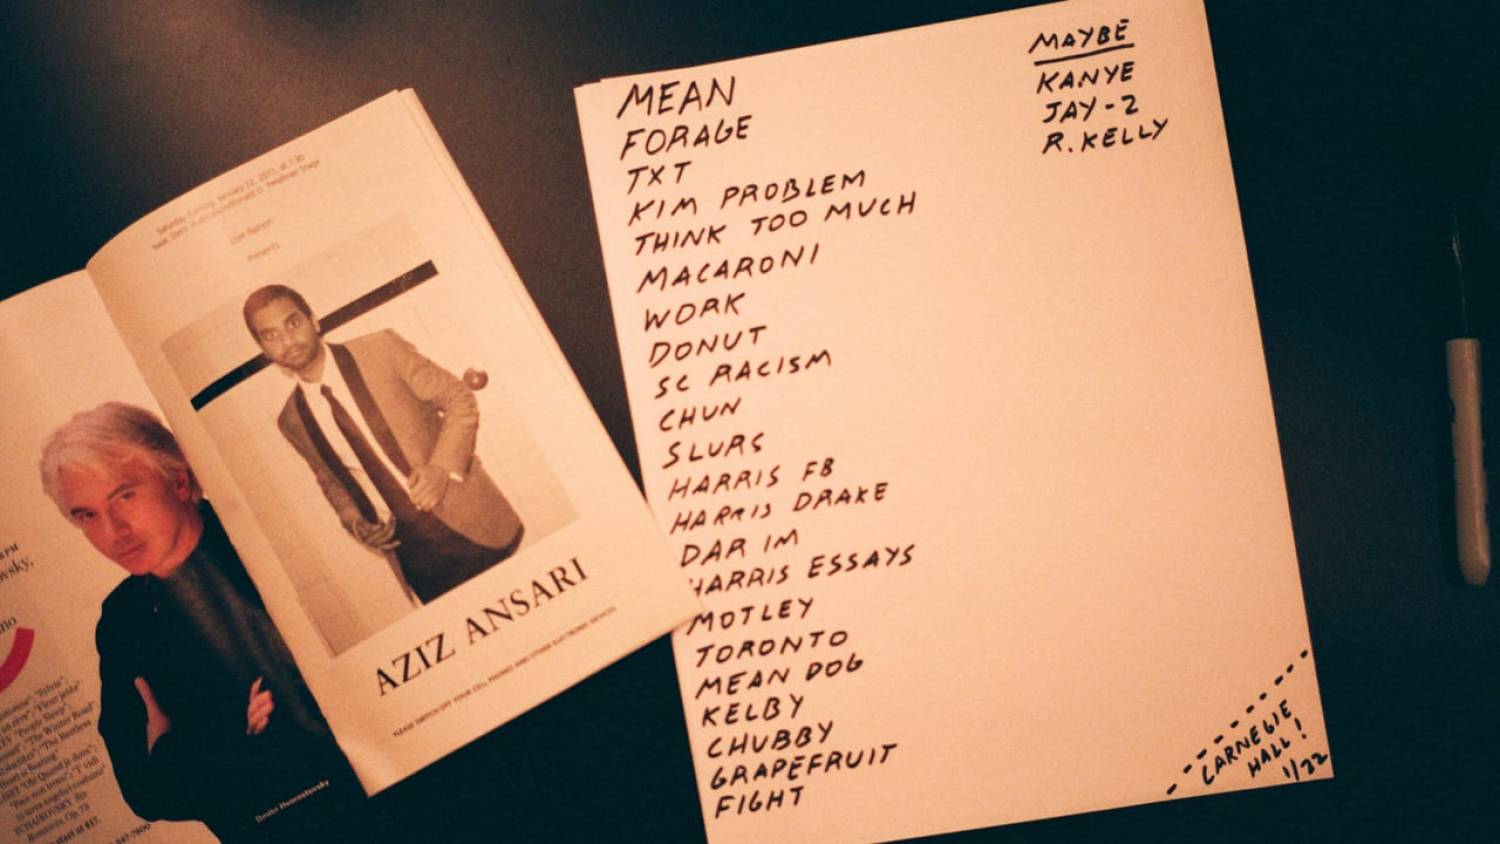 Saturday Evening, January 22, 2011, at 7:30
Isaac Stern Auditorium/Ronald O. Perelman Stage
Live Nation
Presents
AZIZ ANSARI
PLEASE SWITCH OFF YOUR CELL PHONES AND OTHER ELECTRONIC DEVICES
Dmitri Hvorostovsky
MEAN
FORAGE
TXT
KIM PROBLEM
THINK TOO MUCH
MACARONI
WORK
DONUT
SC RACISM
CHUN
SLURS
HARRIS FB
HARRIS DRAKE
DAR IM
HARRIS ESSAYS
MOTLEY
TORONTO
MEAN DOG
KELBY
CHUBBY
GRAPEFRUIT
FIGHT
MAYBE
KANYE
JAY-Z
R.KELLY
CARNEGIE
HALL!
1/22